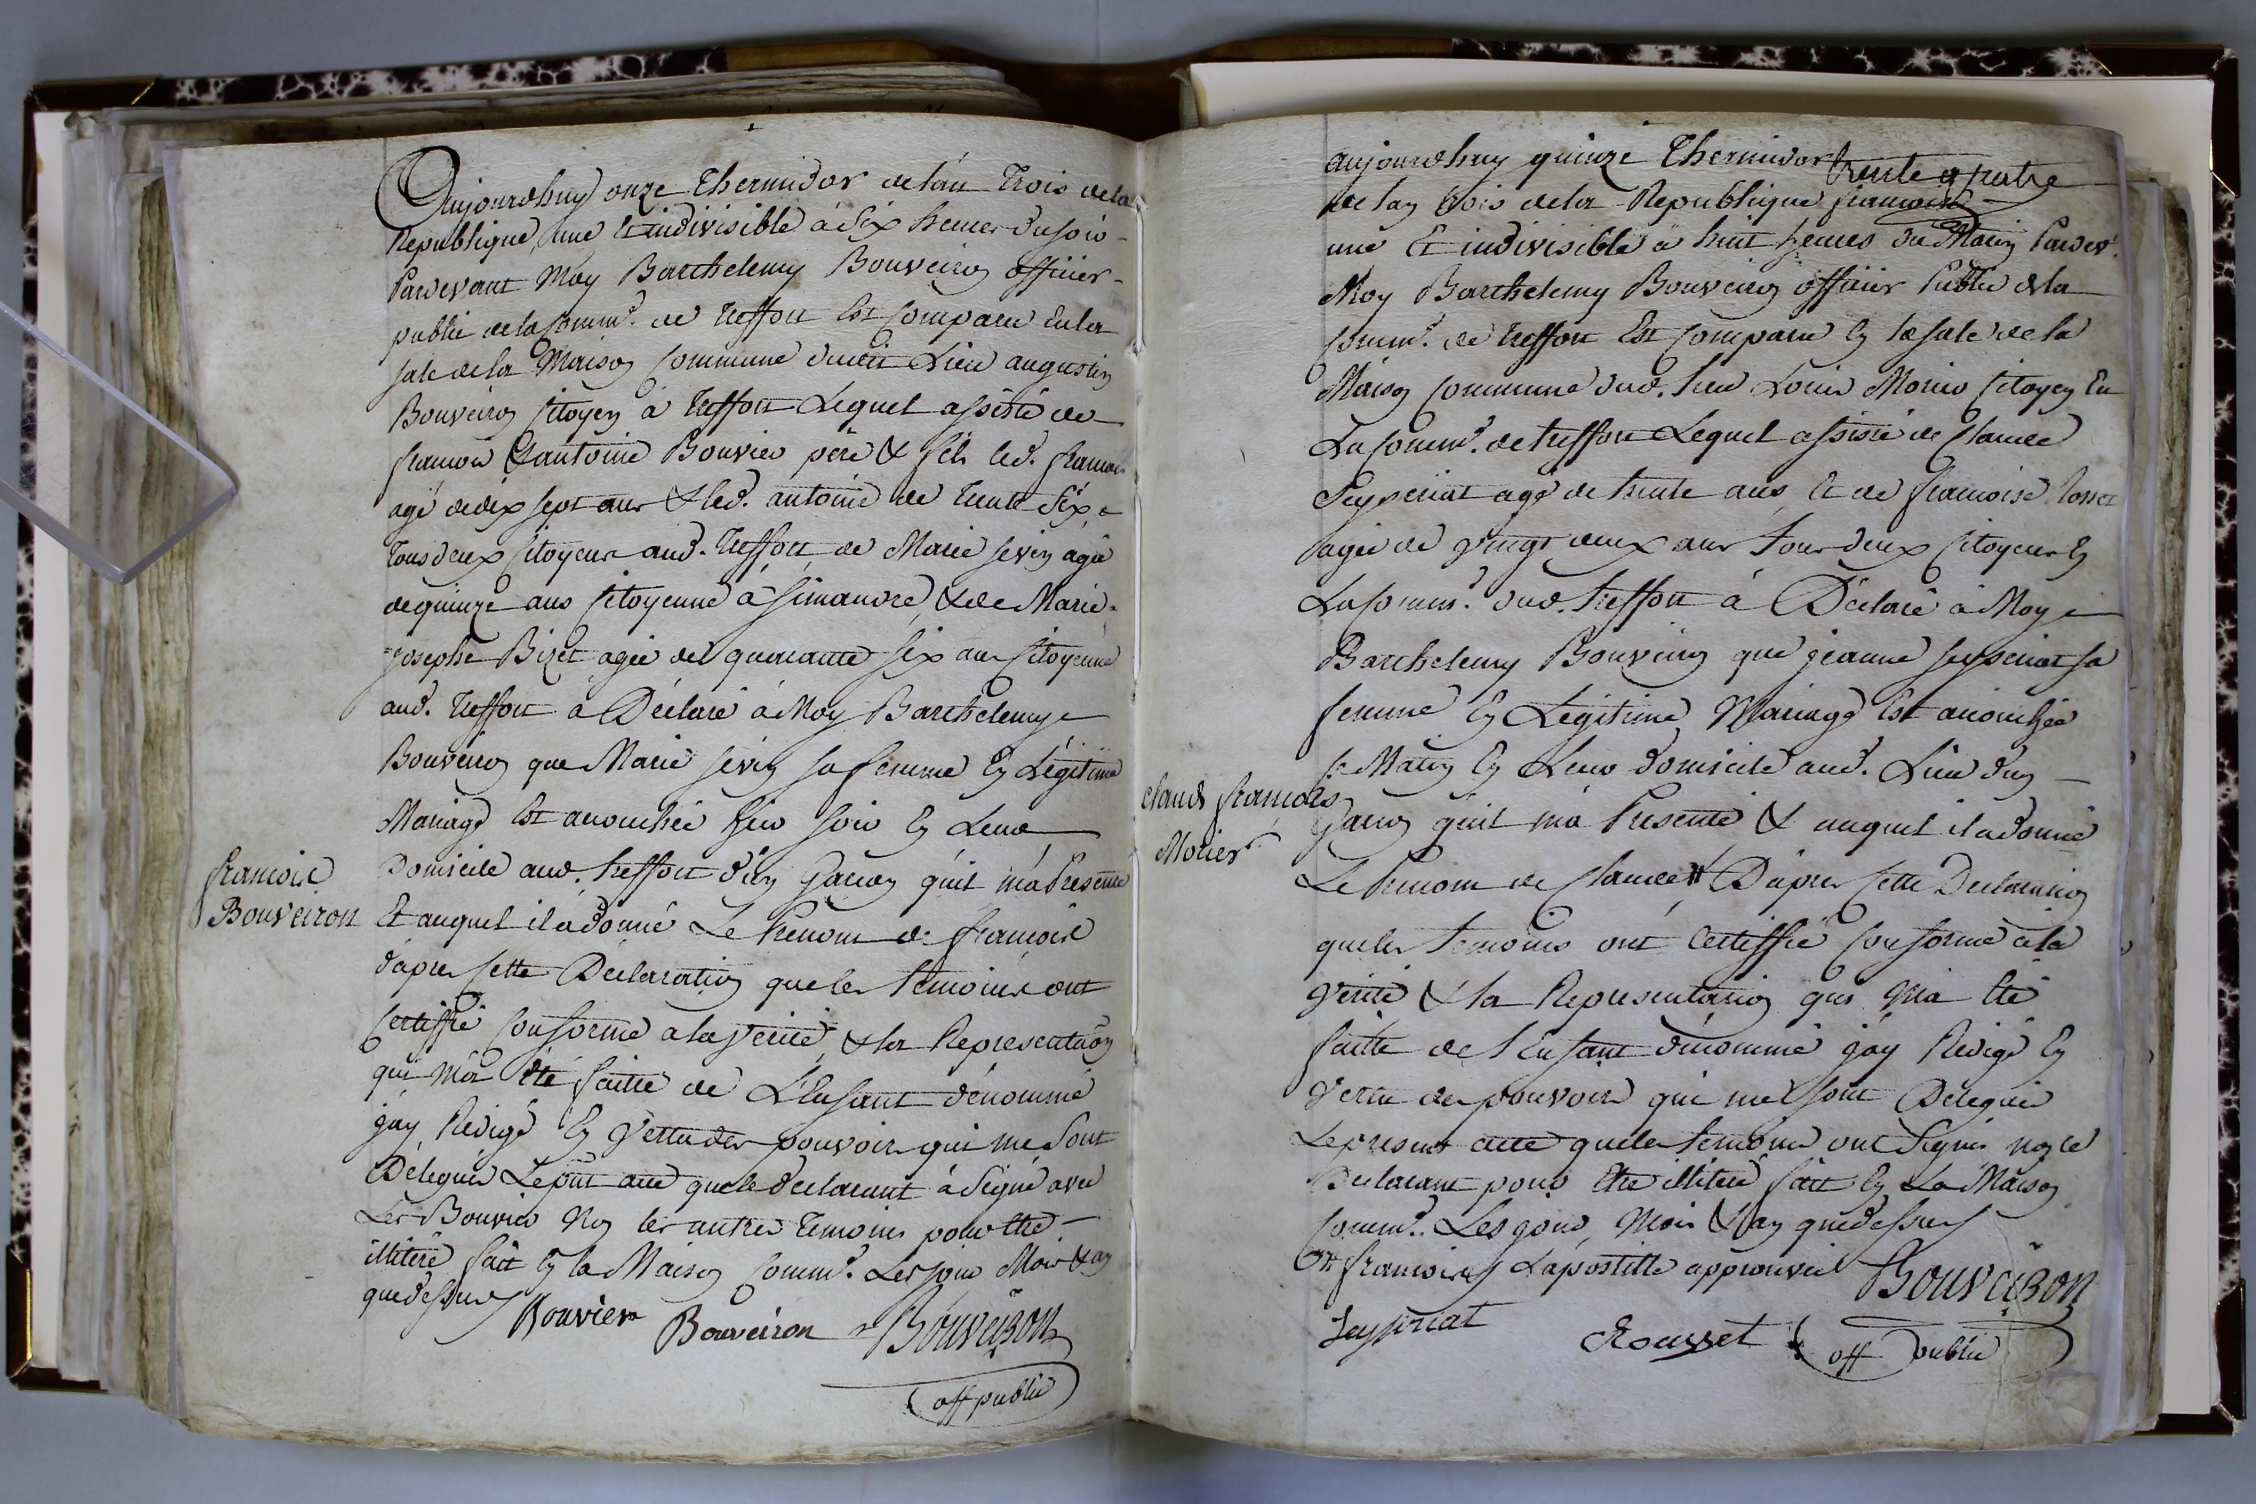 Aujourdhuy onze Thermidor de lan Trois de la
Republique, une Et indivisible à Six heures du soir
Pardevant Moy Barthelemy Bouveiron officier
public de la Comm.e de treffort Est Comparu En la
sale de la Maison Commune dudit Lieu augustin
Bouveiron Citoyen à treffort Lequel assisté de
francois & antoine Bouvier père & fils led. francois
agé de dix sept ans & led. antoine de trente Six
tous deux Citoyens aud. treffort, de Marie sevin agée
de quinze ans Citoyenne à simandre, & de Marie
josephe Bizet agée de quarante six ans Citoyenne
aud. treffort à Déclaré à Moy Barthelemy
Bouveiron que Marie sevin sa femme En Légitime
Mariage Est accouchée hier soir En Leur
francois
Bouveiron
Domicile aud. treffort d'un Garçon qu'il m'a Presenté
Et auquel il a donné Le Prenom de francois
d'apres Cette Declaration que les temoins ont
Certiffié Conforme a la verité, & la Representaon
qui m'a été faitte de L'Enfant dénommé
jay Redigé En vertu des pouvoirs qui me Sont
Délegués Le pnt acte que le declarant à Signé avec
Les Bouvier Non les autres temoins pour être
illiteré fait En la Maison Comm.e Les jour Mois & an
que dessus
Bouvier Bouveiron Bouveiron
off public
trente quatre
aujourdhuy quinze Thermidor
de lan trois de la Republique francoise
une Et indivisible a huit heures du Matin Pardev.t
Moy Barthelemy Bouveiron officier Public de la
Comm.e de treffort Est Comparu En la sale de la
Maison Commune dud. lieu Louis Morier Citoyen En
La Comm.e de treffort Lequel assisté de Claude
Seyseriat agé de trente ans, Et de francoise
agée de vingt deux ans tous deux Citoyens En
La Comm.e dud. treffort à Déclaré à Moy
Barthelemy Bouveiron que jeanne seyseriat sa
femme En Légitime Mariage Est accouchée
ce Matin En Leur domicile aud. Lieu d'un
Claude francois
Morier
Garçon qu'il m'a Presenté & auquel il a donné
Le Prenom de Claude # D'apres Cette Declaration
que les temoins ont Certiffié Conforme à la
verité & la Representation qui M'a été
faitte de l'Enfant dénommé jay Redigé En
vertu des pouvoirs qui me sont Delegués
Le present acte que les temoins ont Signés non le
Declarant pour être illiteré fait En La Maison
Comm.e Les jour, Mois & an que dessus
# francois Lapostille approuvée Bouveiron
Seyseriat Rousset off public